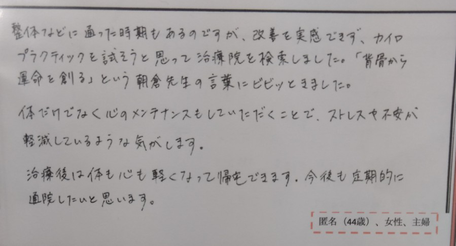 整体などに通った時期もあるのですが、改善を実感できず、カイロ
プラクティックを試そうと思って治療院を検索しました。「背骨から
運命を創る」という朝倉先生の言葉にビビッときました。
体だけでなく心のメンテナンスもしていただくことで、ストレスや不安が
軽減しているような気がします。
治療後は体も心も軽くなって帰宅できます。今後も定期的に
通院したいと思います。
匿名（44歳）、女性、主婦